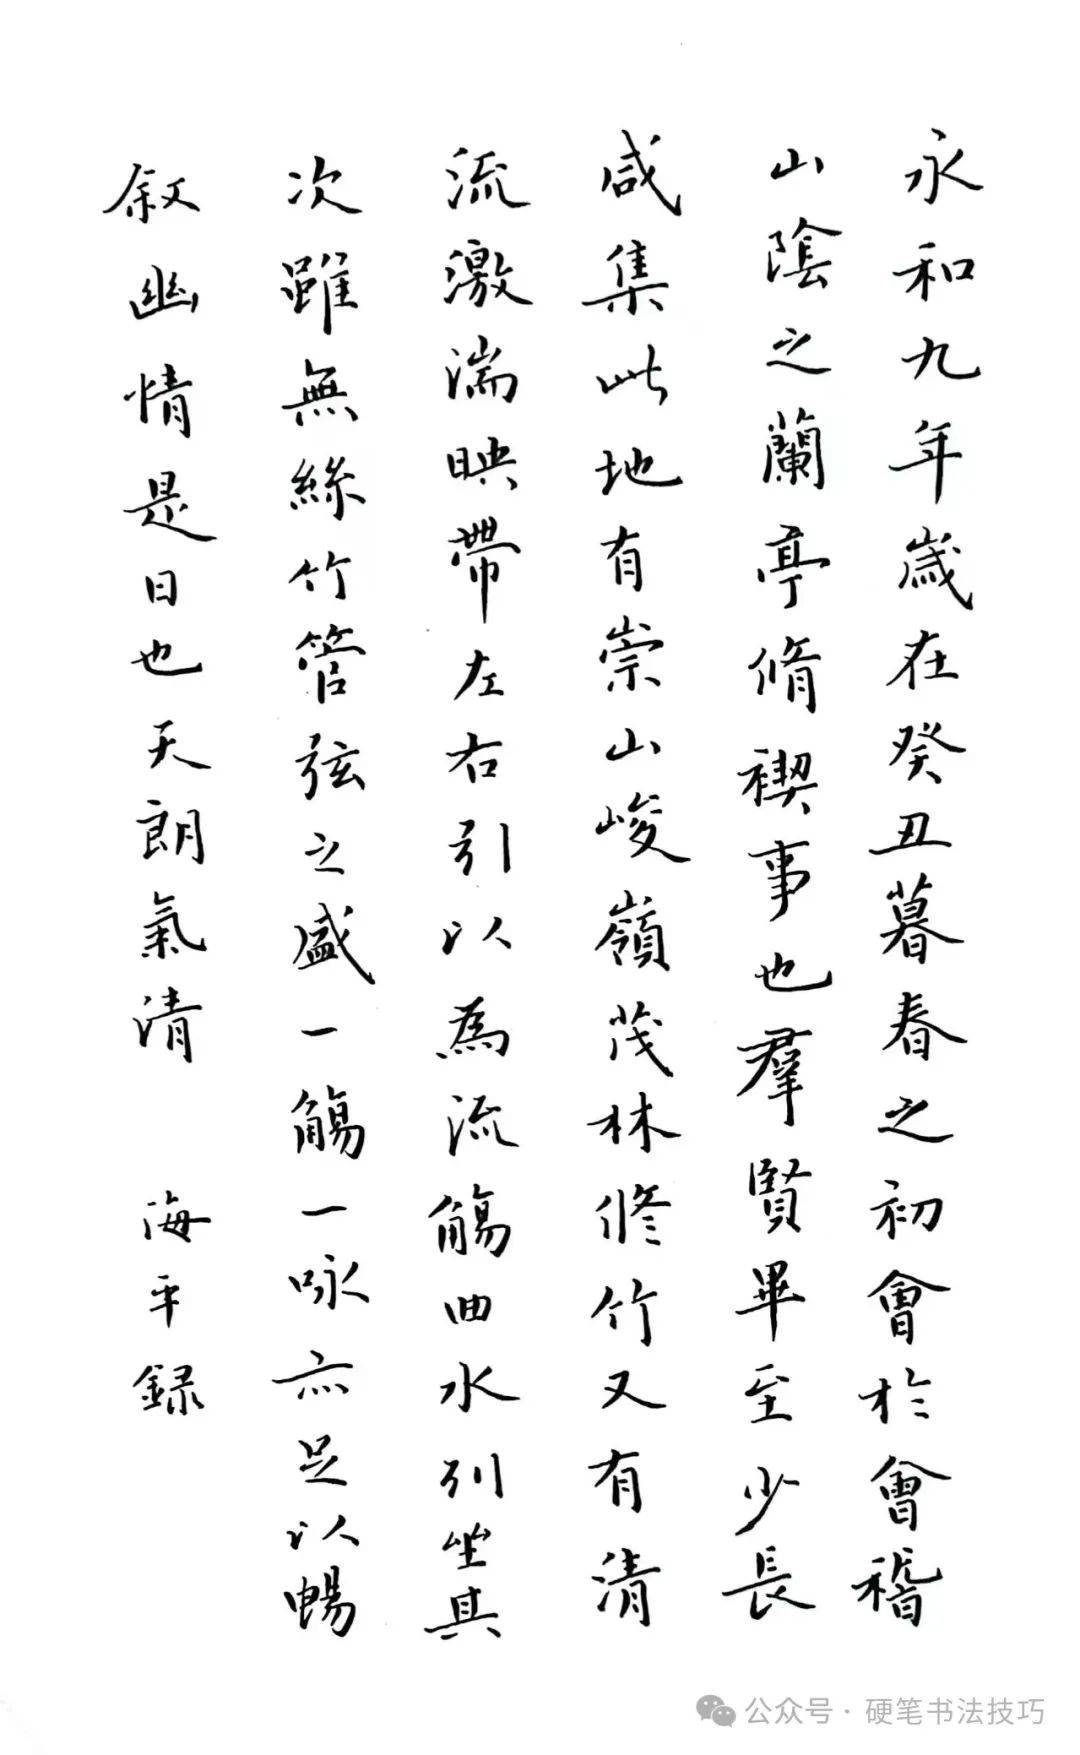 永和九年歲在癸丑暮春之初會於會稽
山陰之蘭亭脩禊事也羣賢畢至少長
咸集此地有崇山峻嶺茂林修竹又有清
流激湍映帶左右引以為流觴曲水列坐其
次雖無絲竹管弦之盛一觴一咏亦足以暢
敘幽情是日也天朗氣清 海平録
公众号·硬笔书法技巧